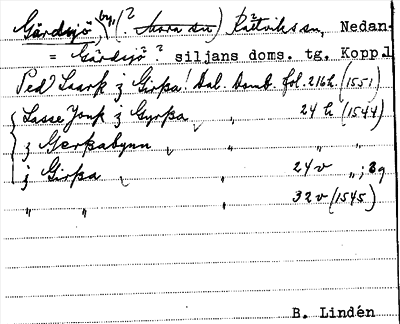 Gärdsjö, by, (? Mora sn) Rättviks sn, Nedan-
= Gärdsjö? siljans doms. tg. Kopp.l
Ped Laark j Girpa! Dal. Domb. fol. 216h. (1551)
Lasse Jonß j Gyrpa 24 h (1544)
j Gerpabynn " " "
j Girpa " 24 v "; 39
" " " 32 v (1545)
B. Lindén